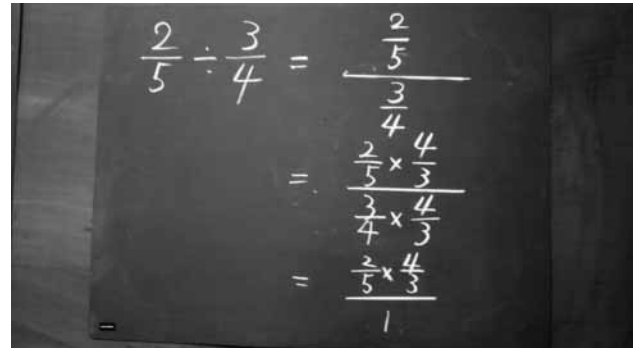 2/5 ÷ 3/4 = (2/5)/(3/4)
= (2/5 × 4/3)/(3/4 × 4/3)
= (2/5 × 4/3)/1